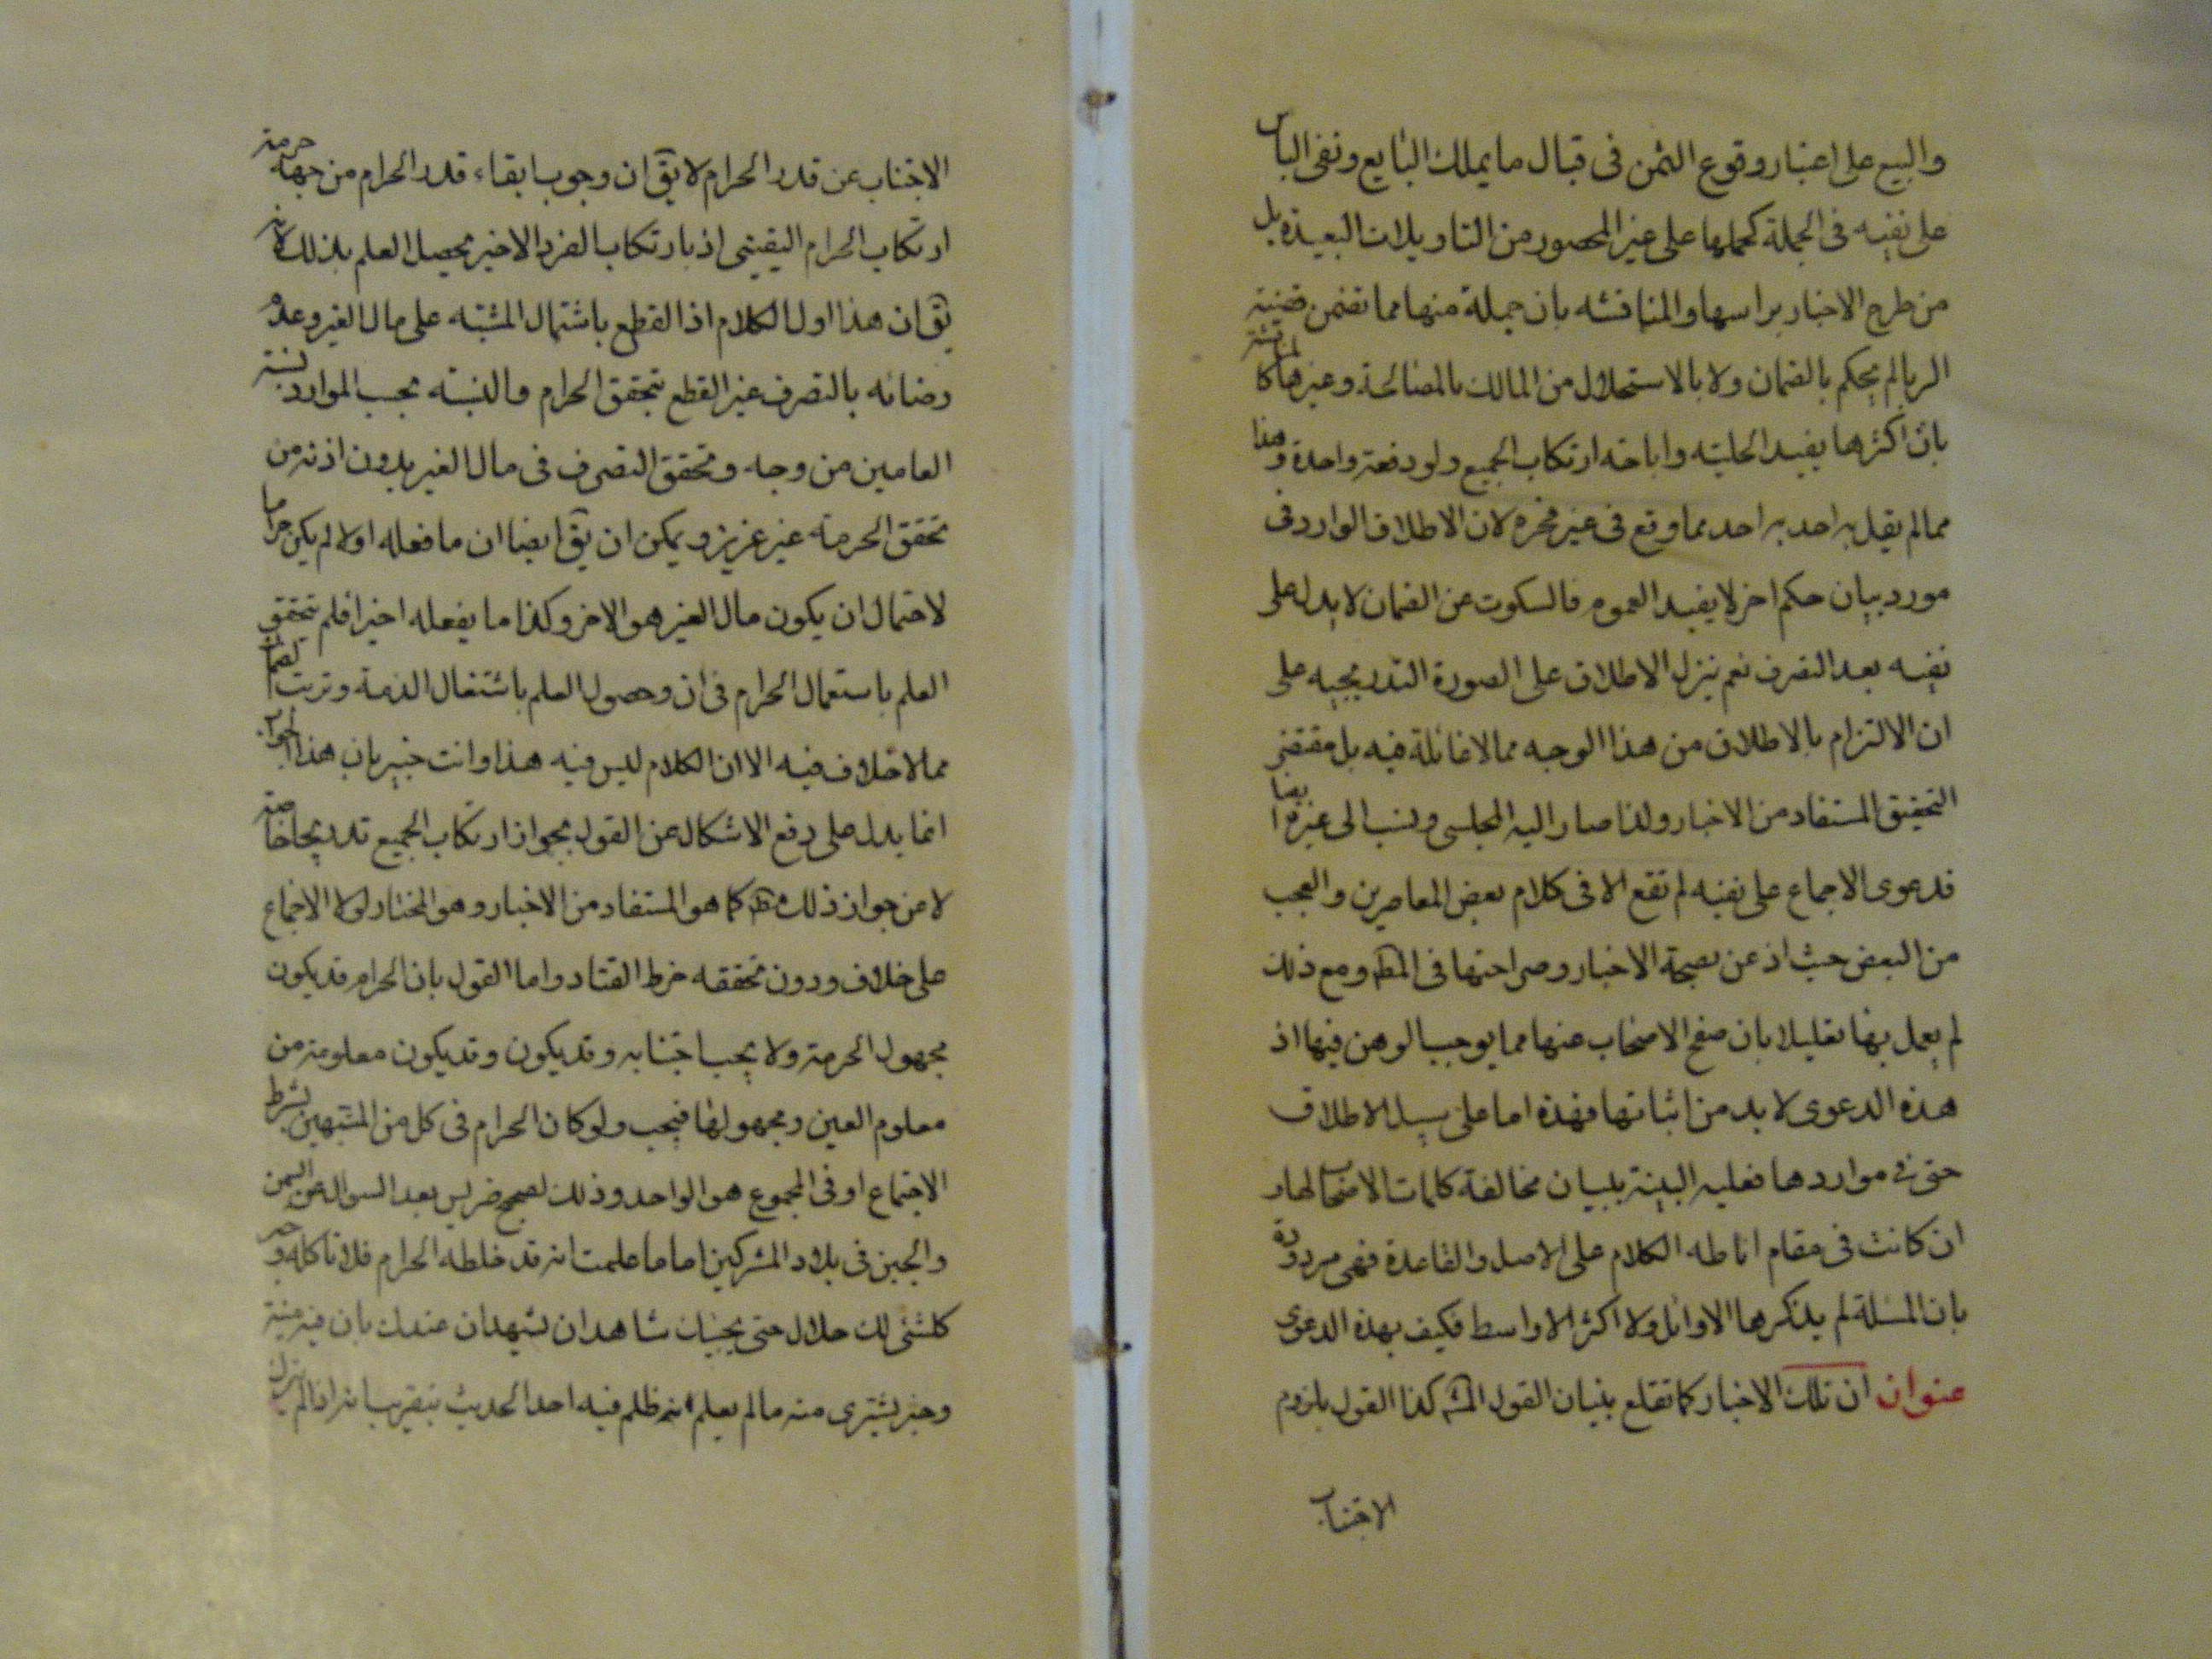 والبيع على اعتبار وقوع الثمن فى قبال ما يملك البايع ونفى الباس
على نفيه فى الجملة كحملها على غير المحصور من التاويلات البعيدة بل
من طرح الاخبار براسها والمناقشه بان جملة منها مما تضمن قضية
الربا لم يحكم بالضمان ولا بالاستحلال من المالك بالمصالحة وغيرها كالمناقشة
بان اكثرها يفيد الحلية واباحة ارتكاب الجميع ولو دفعة واحدة وهذا
مما لم يقل به احد به احد مما وقع فى غير مخره لان الاطلاق الوارد فى
مورد بيان حكم اخر لا يفيد العموم فالسكوت عن الضمان لا يدل على
نفيه بعد التصرف نعم ينزل الاطلاق على الصورة التدريجيه على
ان الالتزام بالاطلاق من هذا الوجه مما لا غائلة فيه بل مقتضى
التحقيق المستفاد من الاخبار ولذا صار اليه المجلسى ونسب الى غيره ايضا
فدعوى الاجماع على نفيه لم تقع الا فى كلام بعض المعاصرين والعجب
من البعض حيث اذعن بصحة الاخبار وصراحتها فى المط ومع ذلك
لم يعمل بها تعليلا بان صفح الاصحاب عنها مما يوجب الوهن فيها اذ
هذه الدعوى لا بد من اثباتها فهذه اما على سبيل الاطلاق
حتى فى مواردها فعليه البينة ببيان مخالفة كلمات الاصحاب لها و
ان كانت فى مقام اناطه الكلام على الاصل والقاعدة فهى مردودة
بان المسئلة لم يذكرها الاوائل ولا اكثر الاواسط فكيف بهذه الدعوى
عنوان ان تلك الاخبار كما تقلع بنيان القول المش كذا القول بلزوم
الاجتناب
الاجتناب عن قدر الحرام لا يق ان وجوب ابقاء قدر الحرام من جهة حرمة
ارتكاب الحرام اليقينى اذ بارتكاب الفرد الاخير يحصل العلم بذلك لانه
يق ان هذا اول الكلام اذ القطع باشتمال المشتبه على مال الغير وعدم
رضائه بالتصرف غير القطع بتحقق الحرام والنسبة بحسب الموارد نسبة
العامين من وجه وتحقق التصرف فى مال الغير بدون اذنه من
تحقق الحرمة غير عزيز ويمكن ان يق ايضا ان ما فعله اولا لم يكن حراما
لاحتمال ان يكون مال الغير هو الاخر وكذا ما يفعله اخيرا فلم يتحقق
العلم باستعمال الحرام فى ان وحصول العلم باشتغال الذمة وترتب الضمان
مما لا خلاف فيه الا ان الكلام ليس فيه هذا وانت خبير بان هذا الجواب
انما يدل على دفع الاشكال عن القول بجواز ارتكاب الجميع تدريجا خاصة
لا عن جواز ذلك مط كما هو المستفاد من الاخبار وهو المختار لولا الاجماع
على خلاف ودون تحققه خرط القتاد واما القول بان الحرام قد يكون
مجهول الحرمة ولا يجب اجتنابه وقد يكون وقد يكون معلومة من
معلوم العين ومجهولها فيجب ولو كان الحرام فى كل من المشتبهين بشرط
الاجتماع او فى المجموع هو الواحد وذلك لصحيح ضريس بعد السوال عن السمن
والجبن فى بلاد المشركين اما ما علمت انه قد خلطه الحرام فلا تاكله وخبر
كلشئ لك حلال حتى يجيئك شاهدان يشهدان عندك بان فيه ميتة
وخبر يشترى منه ما لم يعلم انه ظلم فيه احد الحديث بتقريب انه اذا لم